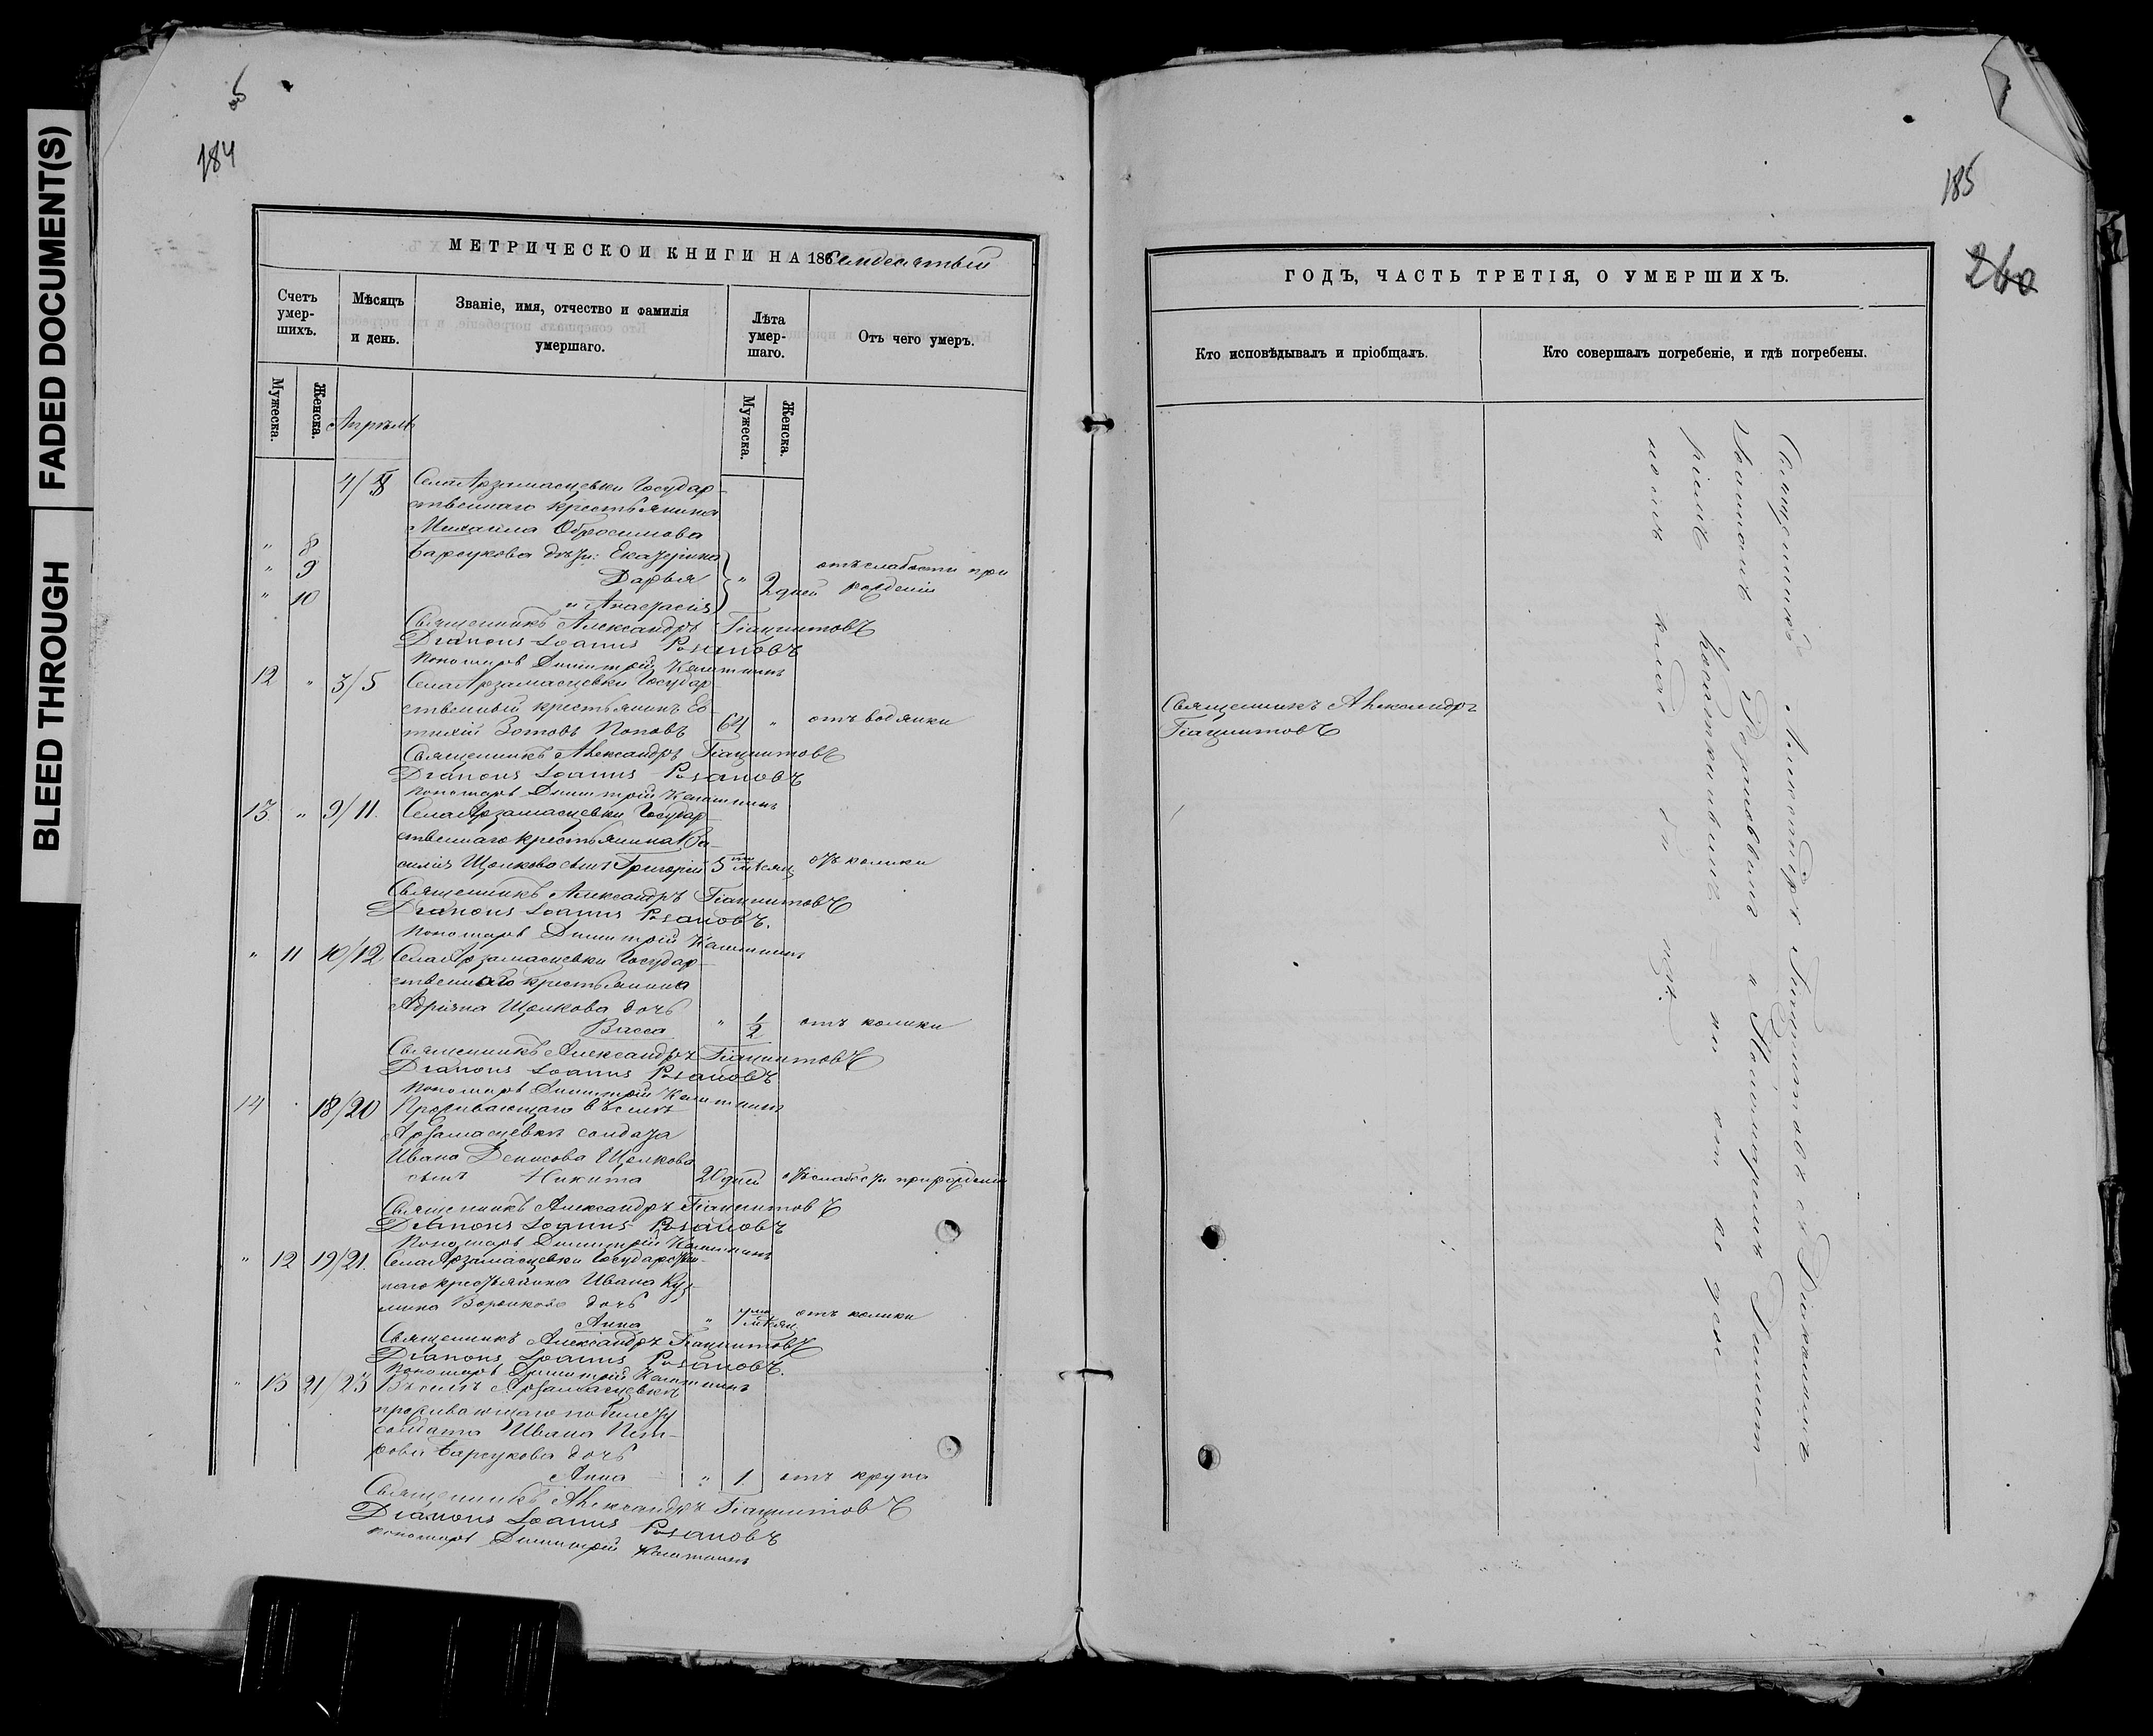 FADED DOCUMENT(S)
BLEED THROUGH
об
184
МЕТРИЧЕСКОЙ КНИГИ НА 186 Семдесятый
Счетъ умер-шихъ.
Мѣсяцъ и день.
Званіе, имя, отчество и фамилія умершаго.
Лѣта умер-шаго.
Отъ чего умеръ.
Мужеска.
Женска.
Мужеска.
Женска.
Апрѣль
4/8 Села Арзамасцевки Государ-
ственнаго крестьянина
Михаила Обросимова
" 8 Барсукова дѣти: Екатерина
" 9 Дарья " 2 дней отъ слабости при
рожденіи
" 10 и Анастасія
Священникъ Александръ Гіацинтовъ
Діаконъ Іоаннъ Розановъ
Пономарь Димитрій
12 " 3/5 Села Арзамасцевки Государ
ственный крестьянинъ Ев
тихій Зотовъ Поповъ 64 " отъ водянки
Священникъ Александръ Гіацинтовъ
Діаконъ Іоаннъ Розановъ
Пономарь Димитрій
13. " 9/11. Села Арзамасцевки Государ-
ственнаго крестьянина Ва-
силія Щолкова сынъ Григорій 5 ти мѣсяц отъ колики
Священникъ Александръ Гіацинтовъ
Діаконъ Іоаннъ Розановъ.
Пономарь Димитрій
" 11 10/12 Села Арзамасцевки Государ-
ственнаго крестьянина
Адріяна Щолкова дочь
Васса " 1/2 отъ колики
Священникъ Александръ Гіацинтовъ
Діаконъ Іоаннъ Розановъ
Пономарь Димитрій
14 18/20 Проживающаго въ селѣ
Арзамасцевкѣ солдата
Ивана Денисова Щолкова
сынъ Никита 20 дней отъ слабости при рожденіи
Священникъ Александръ Гіацинтовъ
Діаконъ Іоаннъ Розановъ
Пономарь Димитрій
" 12 19/21. Села Арзамасцевки Государствен-
наго крестьянина Ивана Куз-
мина Воронкова дочь
Анна " мѣсяц отъ колики
Священникъ Александръ Гіацинтовъ
Діаконъ Іоаннъ Розановъ.
Пономарь Димитрій
" 13 21/23 Въ селѣ Арзамасцевкѣ
проживающаго по билету
солдата Ивана Пет-
рова Барсукова дочь
Анна " 1 отъ крупа
Священникъ Александръ Гіацинтовъ
Діаконъ Іоаннъ Розановъ
Пономарь Димитрій
185
260
ГОДЪ, ЧАСТЬ ТРЕТІЯ, О УМЕРШИХЪ.
Кто исповѣдывалъ и пріобщалъ.
Кто совершалъ погребеніе, и гдѣ погребены.
Священникъ Александръ
Гіацинтовъ
Священникъ Александръ Гіацинтовъ съ Діакономъ
Іоанномъ Розановымъ и Пономаремъ Димит-
ріемъ